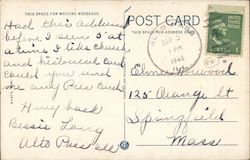 THIS SPACE FOR WRITING MESSAGES
POST CARD
THIS SPACE FOR ADDRESS ONLY
Had this address
before I seen 5 at
a time I like church
and historical card
could you send
me any Pres Card
Hurry back
Bessie Long
Alto Pass Ill
1 PM
1946
Elmer Harwood
125 Orange St
Springfield
Mass